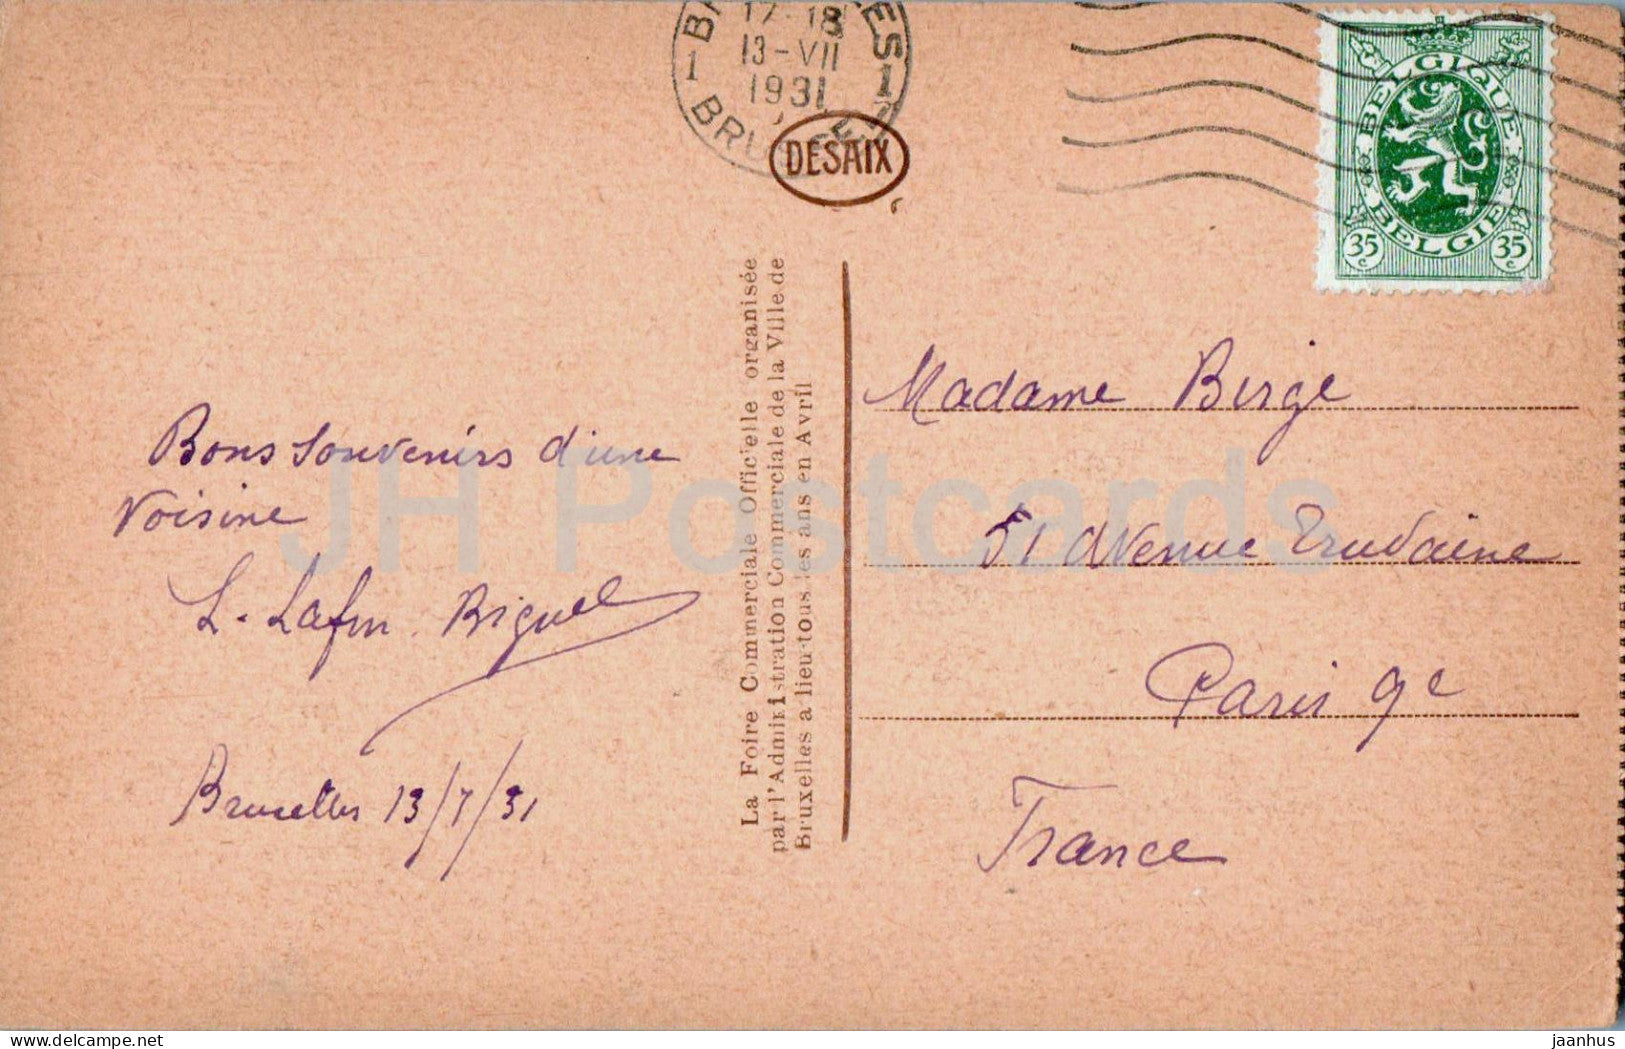 17-18
13-VII
1931
1
1
DESAIX
BELGIQUE
BELGIË
35 c
35 c
Bons souvenirs d'une
voisine
Bruxelles 13/7/31
La Foire Commerciale Officielle organisée
par l'Administration Commerciale de la Ville de
Bruxelles a lieu tous les ans en Avril
Madame Birge
51 Avenue Trudaine
Paris 9e
France
JH Postcards
delcampe.net
jaanhus